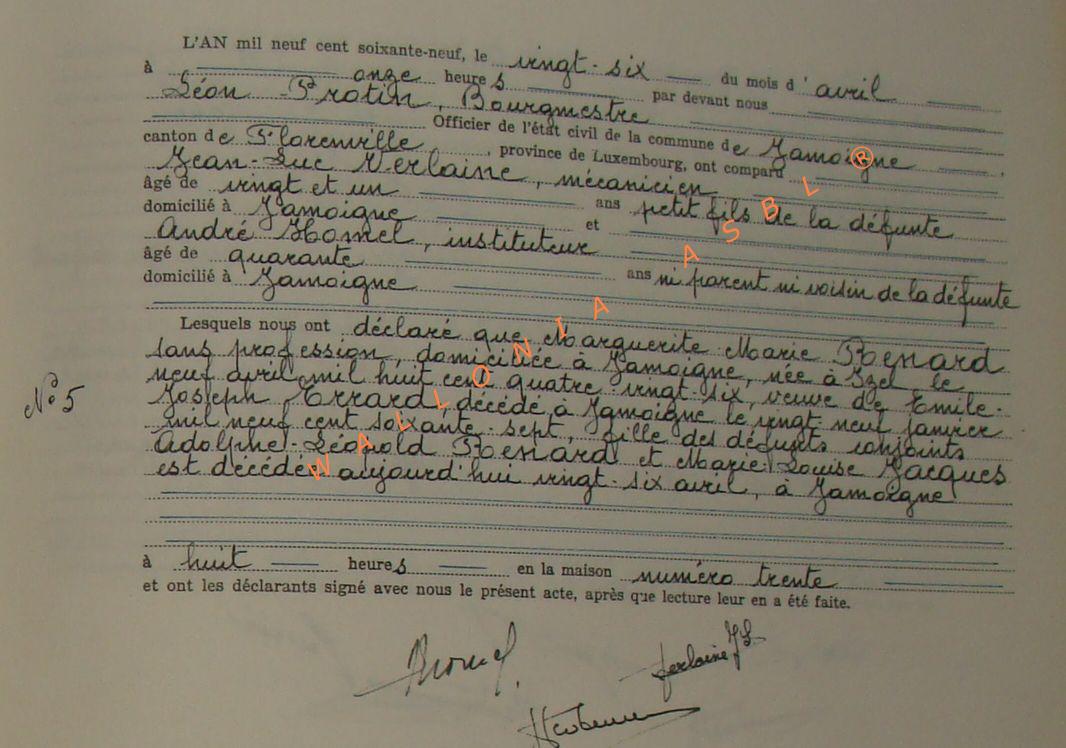 L'AN mil neuf cent soixante-neuf, le vingt-six du mois d'avril
à onze heures par devant nous
Léon Protin, Bourgmestre
Officier de l'état civil de la commune de Jamoigne
canton de Florenville, province de Luxembourg, ont comparu
Jean-Luc Verlaine, mécanicien
âgé de vingt et un ans petit fils de la défunte
domicilié à Jamoigne et
André Homel, instituteur
âgé de quarante ans ni parent ni voisin de la défunte
domicilié à Jamoigne
Lesquels nous ont déclaré que Marguerite Marie Renard
sans profession, domiciliée à Jamoigne, née à Izel le
N° 5
neuf avril mil huit cent quatre vingt-six, veuve de Emile-
Joseph Errard, décédé à Jamoigne le vingt-neuf janvier
mil neuf cent soixante-sept, fille des défunts conjoints
Adolphe-Léopold Renard et Marie-Louise Jacques
est décédée aujourd'hui vingt-six avril, à Jamoigne
à huit heures en la maison numéro trente
et ont les déclarants signé avec nous le présent acte, après que lecture leur en a été faite.
Verlaine JL
WALLONIA ASBL ®